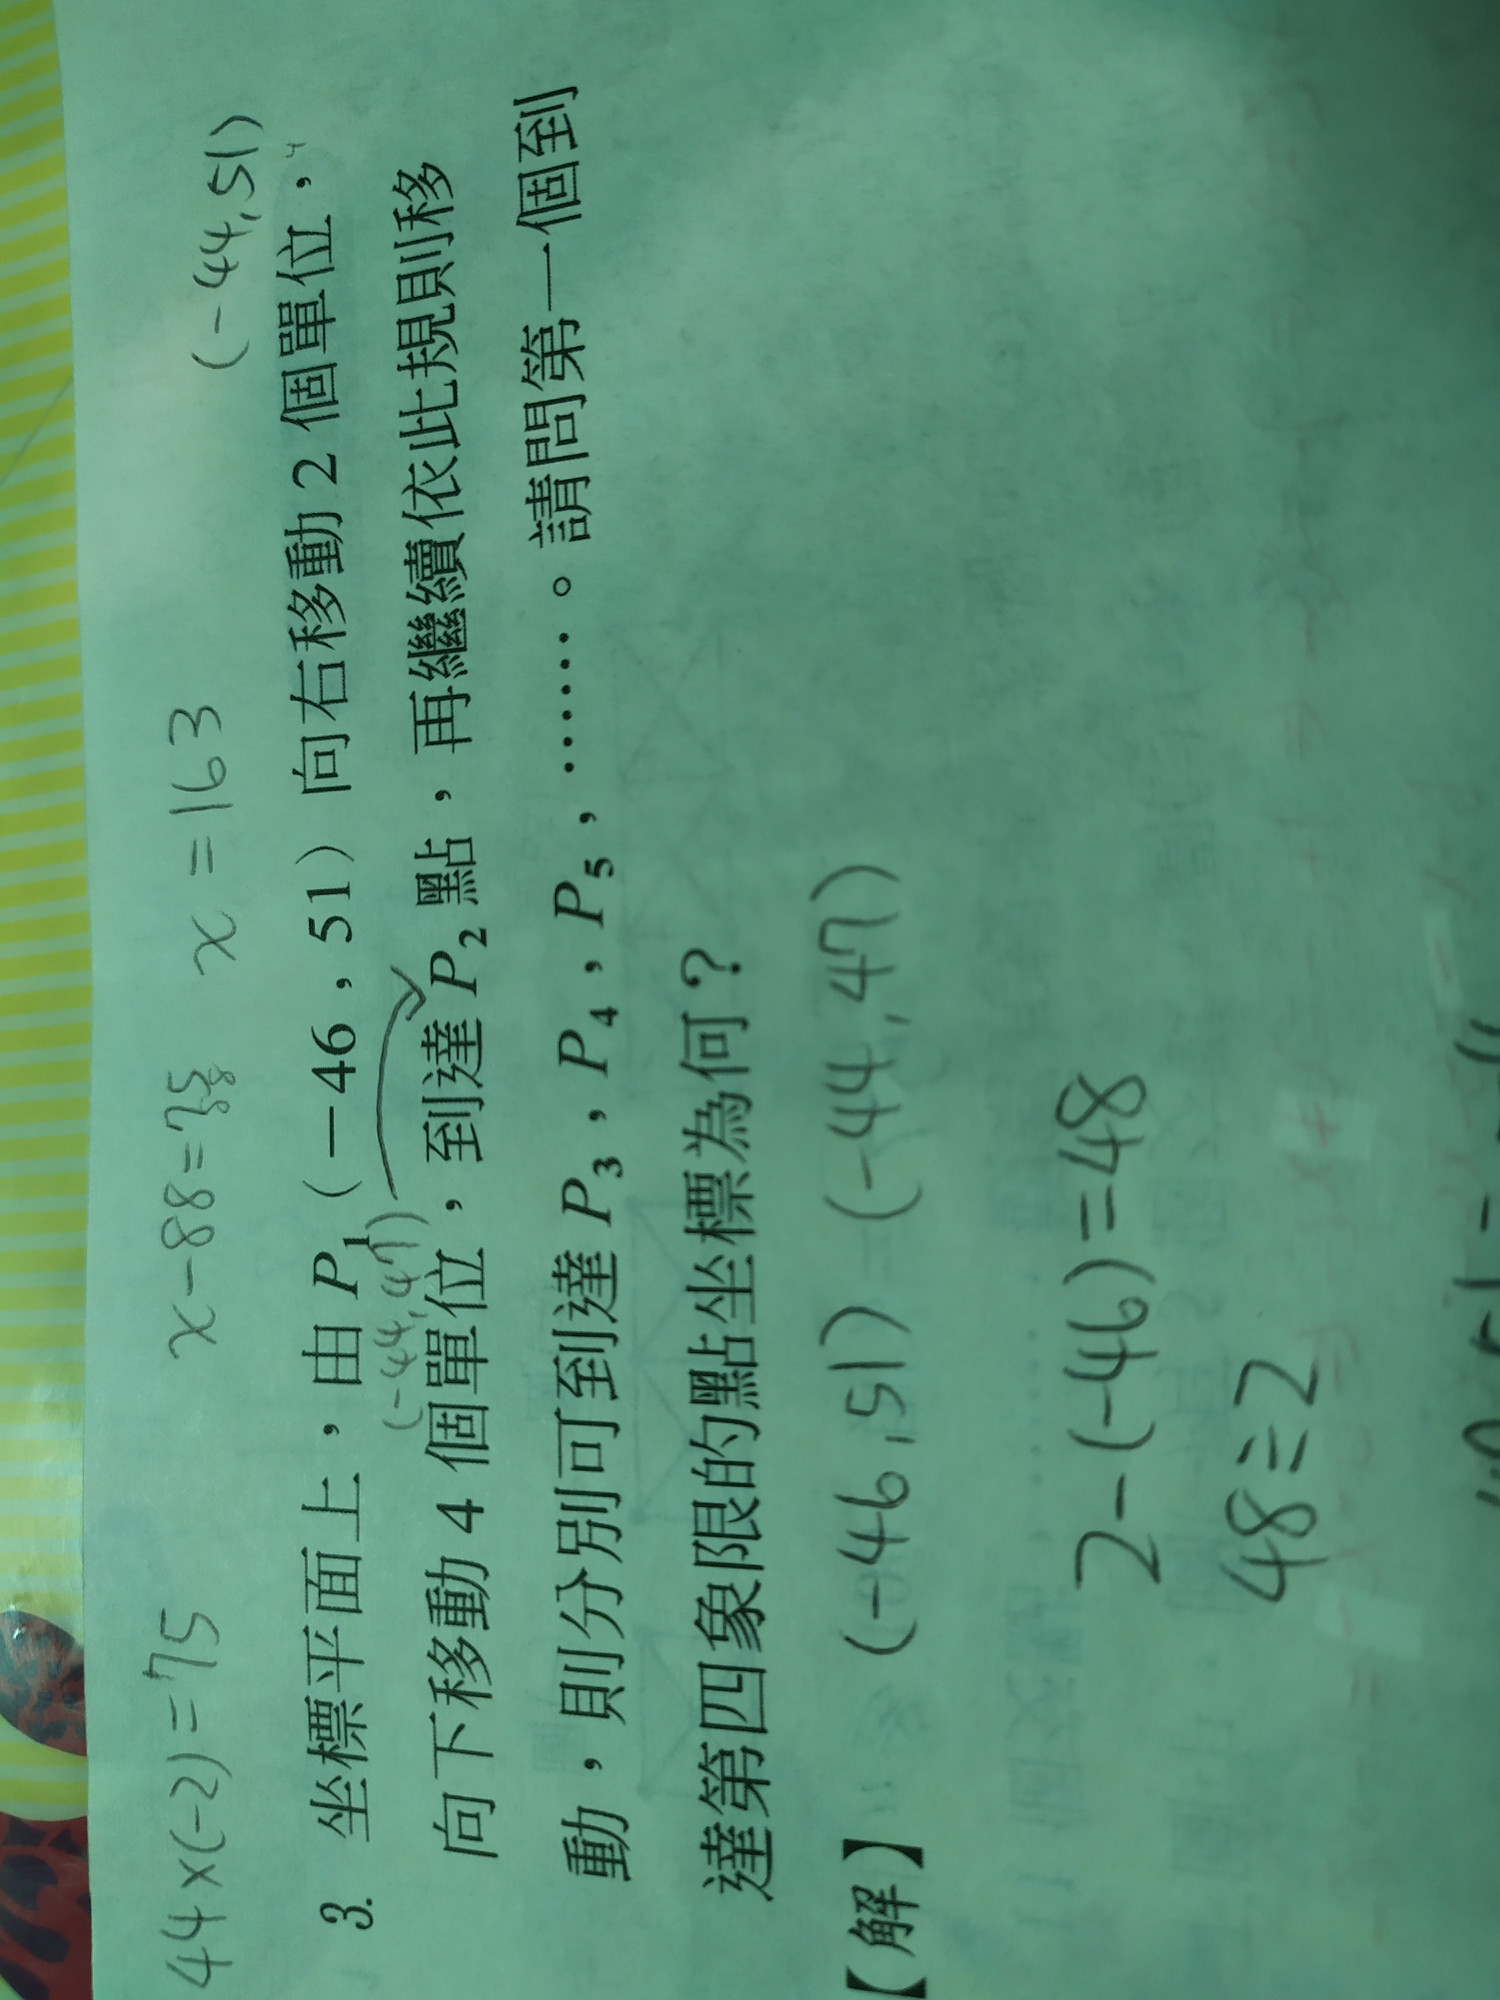 44×(-2)=75 x-88=75 x=163
(-44,51)
3. 坐標平面上，由 P₁（-46，51）向右移動 2 個單位，
(-44,47)
向下移動 4 個單位，到達 P₂ 點，再繼續依此規則移
動，則分別可到達 P₃，P₄，P₅，……。請問第一個到
達第四象限的點坐標為何？
【解】 (-46,51) (-44,47)
2-(-46)=48
48÷2